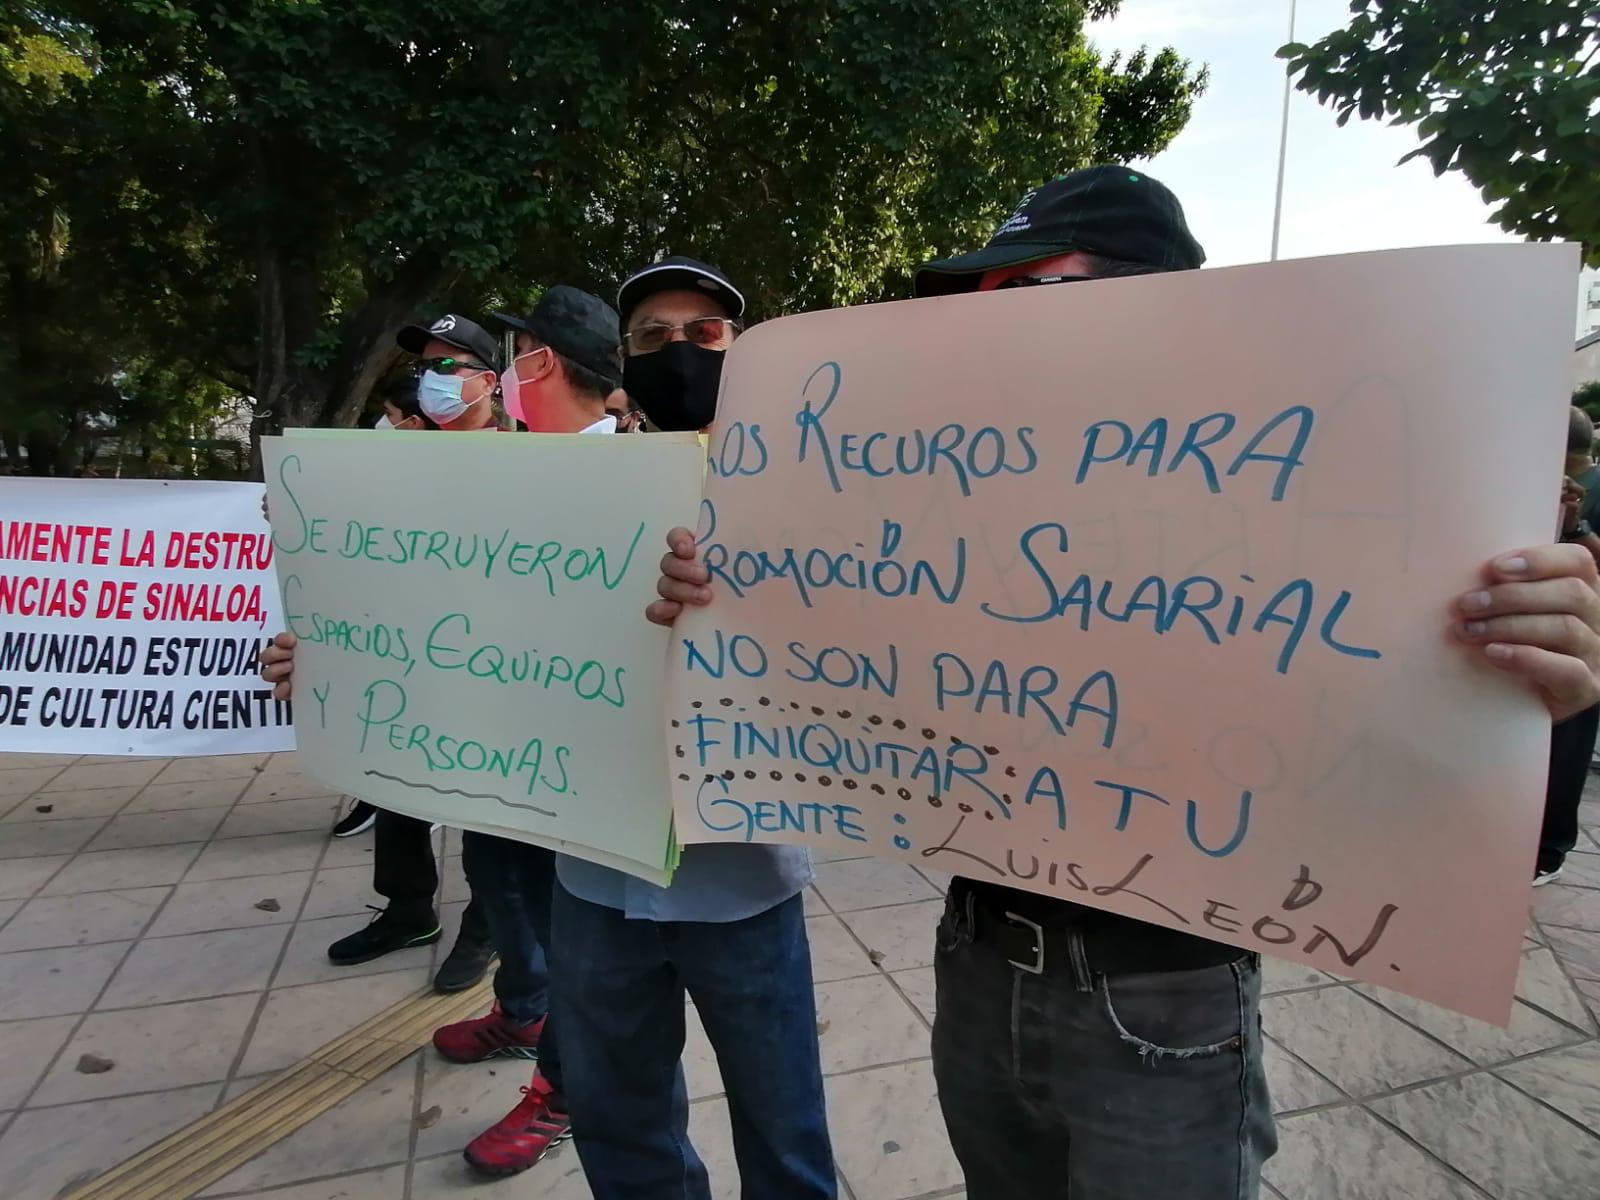 AMENTE LA DESTRU
NCIAS DE SINALOA,
MUNIDAD ESTUDIA
DE CULTURA CIENTI
SE DESTRUYERON
ESPACIOS, EQUIPOS
Y PERSONAS.
LOS RECUROS PARA
PROMOCIÓN SALARIAL
NO SON PARA
FINIQUITAR A TU
GENTE: LUIS LEÓN.